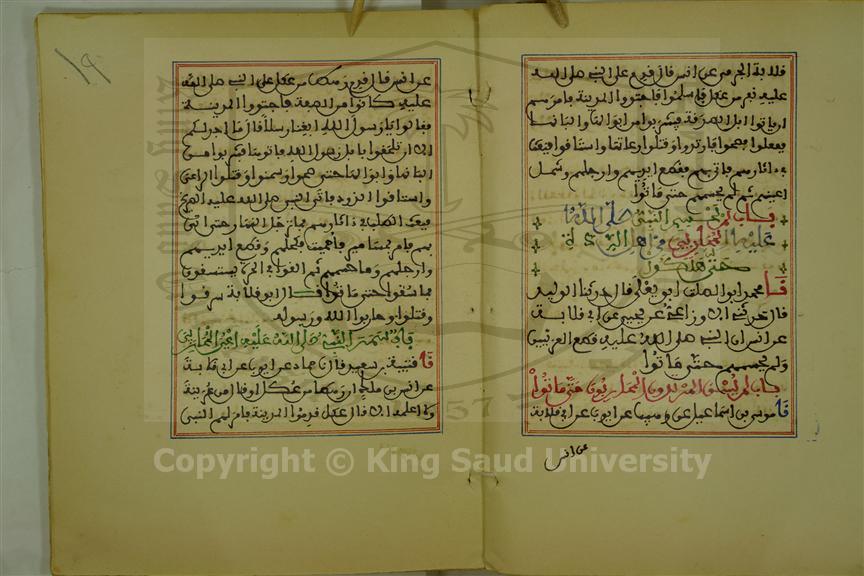 قلابة الجرمي عن انس قال قدم على النبي صلى الله
عليه نفر من عكل فأسلموا فاجتووا المدينة فأمرهم
ان ياتوا ابل الصدقة فيشربوا من ابوالها والبانها
ففعلوا فصحوا فارتدوا وقتلوا رعاتها واستاقوا فبعث
في ءاثارهم فاتي بهم فقطع ايديهم وارجلهم وسمل
اعينهم ثم لم يحسمهم حتى ماتوا
باب لم يحسم النبي صلى الله
عليه المحاربين من اهل الردة
حتى هلكوا
نا محمد ابو الصلت ابو يعلى قال حدثنا الوليد
قال حدثني الاوزاعي عن يحيى عن ابي قلابة
عن انس ان النبي صلى الله عليه قطع العرنيين
ولم يحسمهم حتى ماتوا
باب لم يسق المرتدون المحاربون حتى ماتوا
نا موسى بن اسماعيل عن وهيب عن ايوب عن ابي قلابة
عن انس
١٩
عن انس قال قدم رهط من عكل على النبي صلى الله
عليه كانوا في الصفة فاجتووا المدينة
فقالوا يا رسول الله ابغنا رسلا قال ما اجد لكم
الا ان تلحقوا بابل رسول الله فاتوها فشربوا من
البانها وابوالها حتى صحوا وسمنوا وقتلوا الراعي
واستاقوا الذود فاتى النبي صلى الله عليه الصريخ
فبعث الطلب في ءاثارهم فما ترجل النهار حتى اتي
بهم فامر بمسامير فاحميت فكحلهم وقطع ايديهم
وارجلهم وما حسمهم ثم القوا في الحرة يستسقون
فما سقوا حتى ماتوا قال ابو قلابة سرقوا
وقتلوا وحاربوا الله ورسوله
باب سمر النبي صلى الله عليه اعين المحاربين
نا قتيبة بن سعيد قال نا حماد عن ايوب عن ابي قلابة
عن انس بن ملك ان رهطا من عكل او قال من عرينة
ولا اعلمه الا قال عكل قدموا المدينة فامر لهم النبي
Copyright © King Saud University
1957